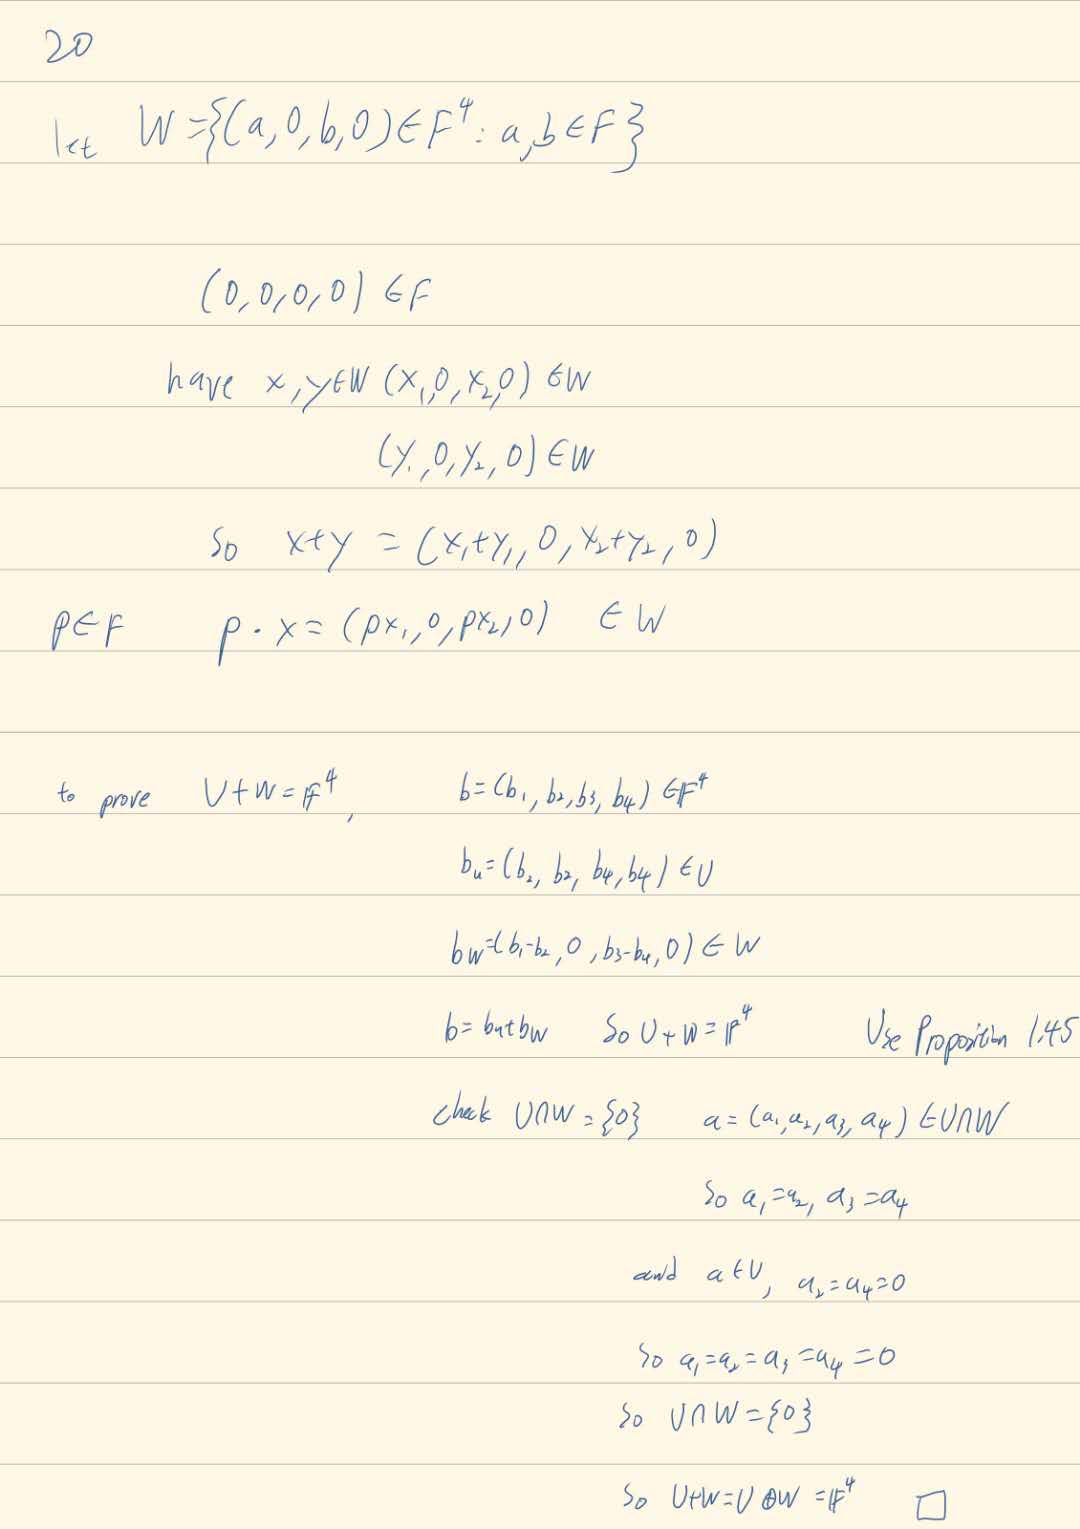 20
let W={(a,0,b,0)∈F⁴: a,b∈F}
(0,0,0,0)∈F
have x,y∈W (x₁,0,x₂,0)∈W
(y₁,0,y₂,0)∈W
So x+y = (x₁+y₁,0,x₂+y₂,0)
p∈F p·x=(px₁,0,px₂,0) ∈W
to prove U+W=𝔽⁴, b=(b₁,b₂,b₃,b₄)∈𝔽⁴
bᵤ=(b₂,b₂,b₄,b₄)∈U
bw=(b₁-b₂,0,b₃-b₄,0)∈W
b=bᵤ+bw So U+W=𝔽⁴ Use Proposition 1.45
check U∩W={0} a=(a₁,a₂,a₃,a₄)∈U∩W
So a₁=a₂, a₃=a₄
and a∈U, a₂=a₄=0
So a₁=a₂=a₃=a₄=0
So U∩W={0}
So U+W=U⊕W=𝔽⁴ □